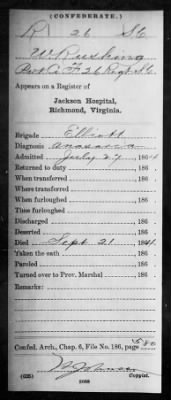 (CONFEDERATE.)
R 26 S.C.
W. Rushing
Pvt Co F 26 Regt S.C.
Appears on a Register of
Jackson Hospital,
Richmond, Virginia.
Brigade Elliott
Diagnosis Anasarca
Admitted July 27, 1864
Returned to duty , 186 .
When transferred , 186 .
Where transferred
When furloughed , 186 .
Time furloughed
Discharged , 186 .
Deserted , 186 .
Died Sept 21, 1864.
Taken the oath , 186 .
Paroled , 186 .
Turned over to Prov. Marshal , 186 .
Remarks:
Confed. Arch., Chap. 6, File No. 186, page 580
(635) Copyist.